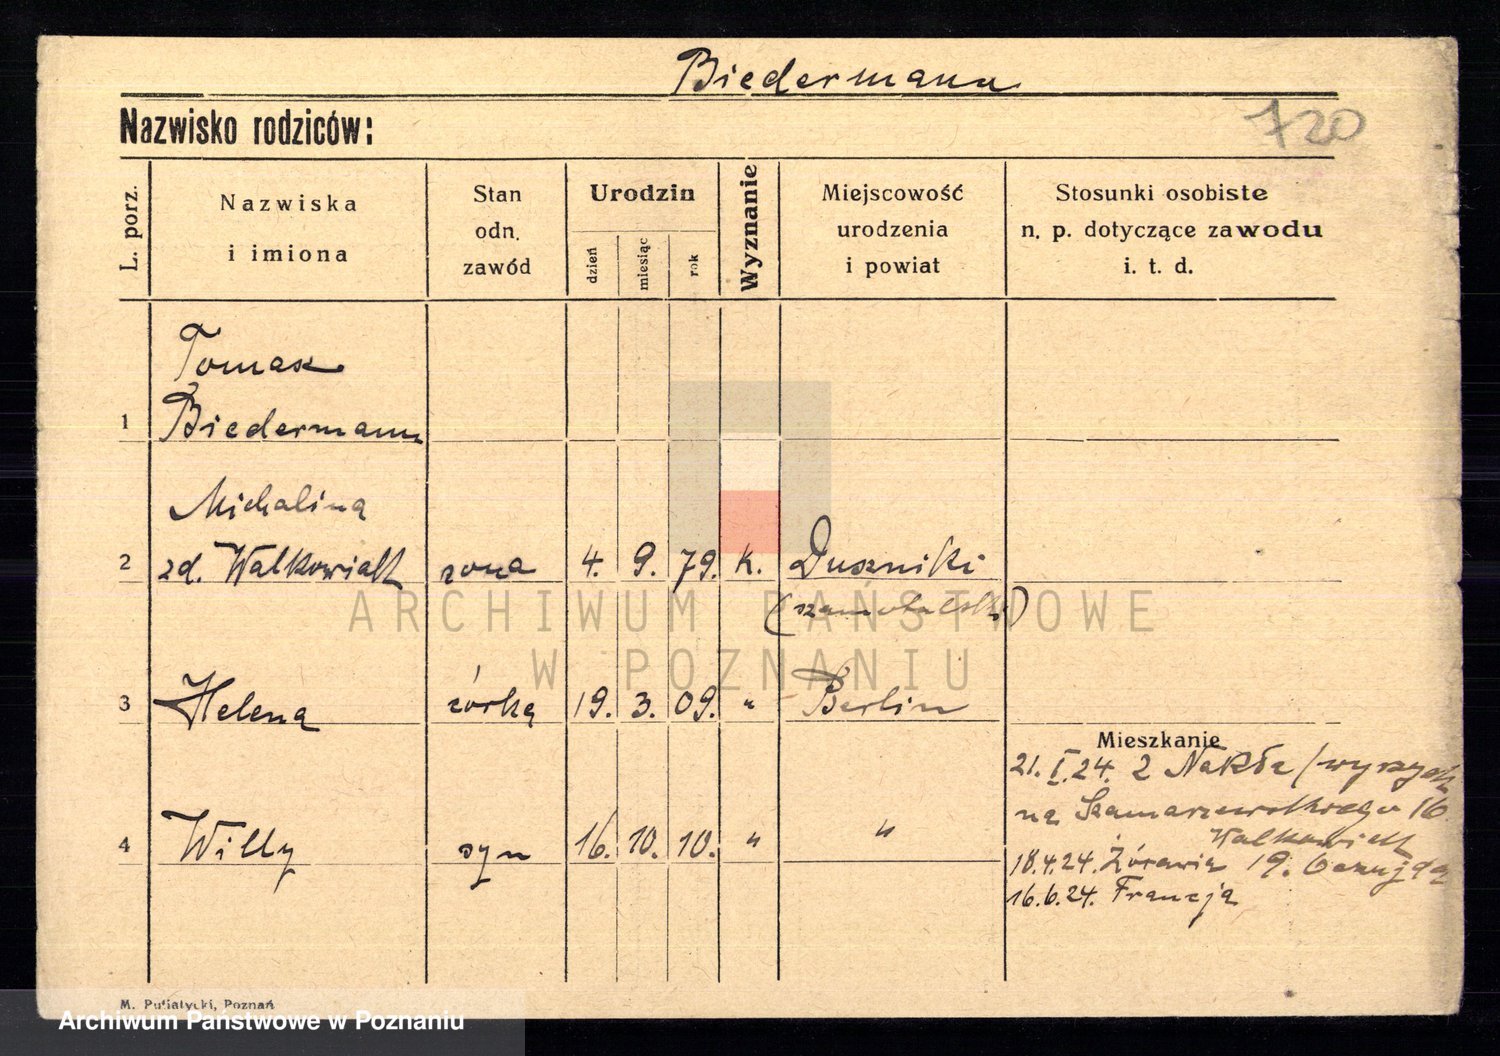 Biedermann
720
Nazwisko rodziców:
L. porz.
Nazwiska
i imiona
Stan
odn.
zawód
Urodzin
dzień
miesiąc
rok
Wyznanie
Miejscowość
urodzenia
i powiat
Stosunki osobiste
n. p. dotyczące zawodu
i. t. d.
Tomasz
1 Biedermann
Michalina
2 zd. Walkowiak żona 4. 9. 79. K. Duszniki
(szamotulski)
ARCHIWUM PAŃSTWOWE
W POZNANIU
3 Helena córka 19. 3. 09. " Berlin
Mieszkanie
21. I. 24. z Nakła
na Szamarzewskiego 16
Walkowiak
4 Willy syn 16. 10. 10. " "
18.4.24. Żórawia 19.
16.6.24. Francja
M. Putiatycki, Poznań
Archiwum Państwowe w Poznaniu